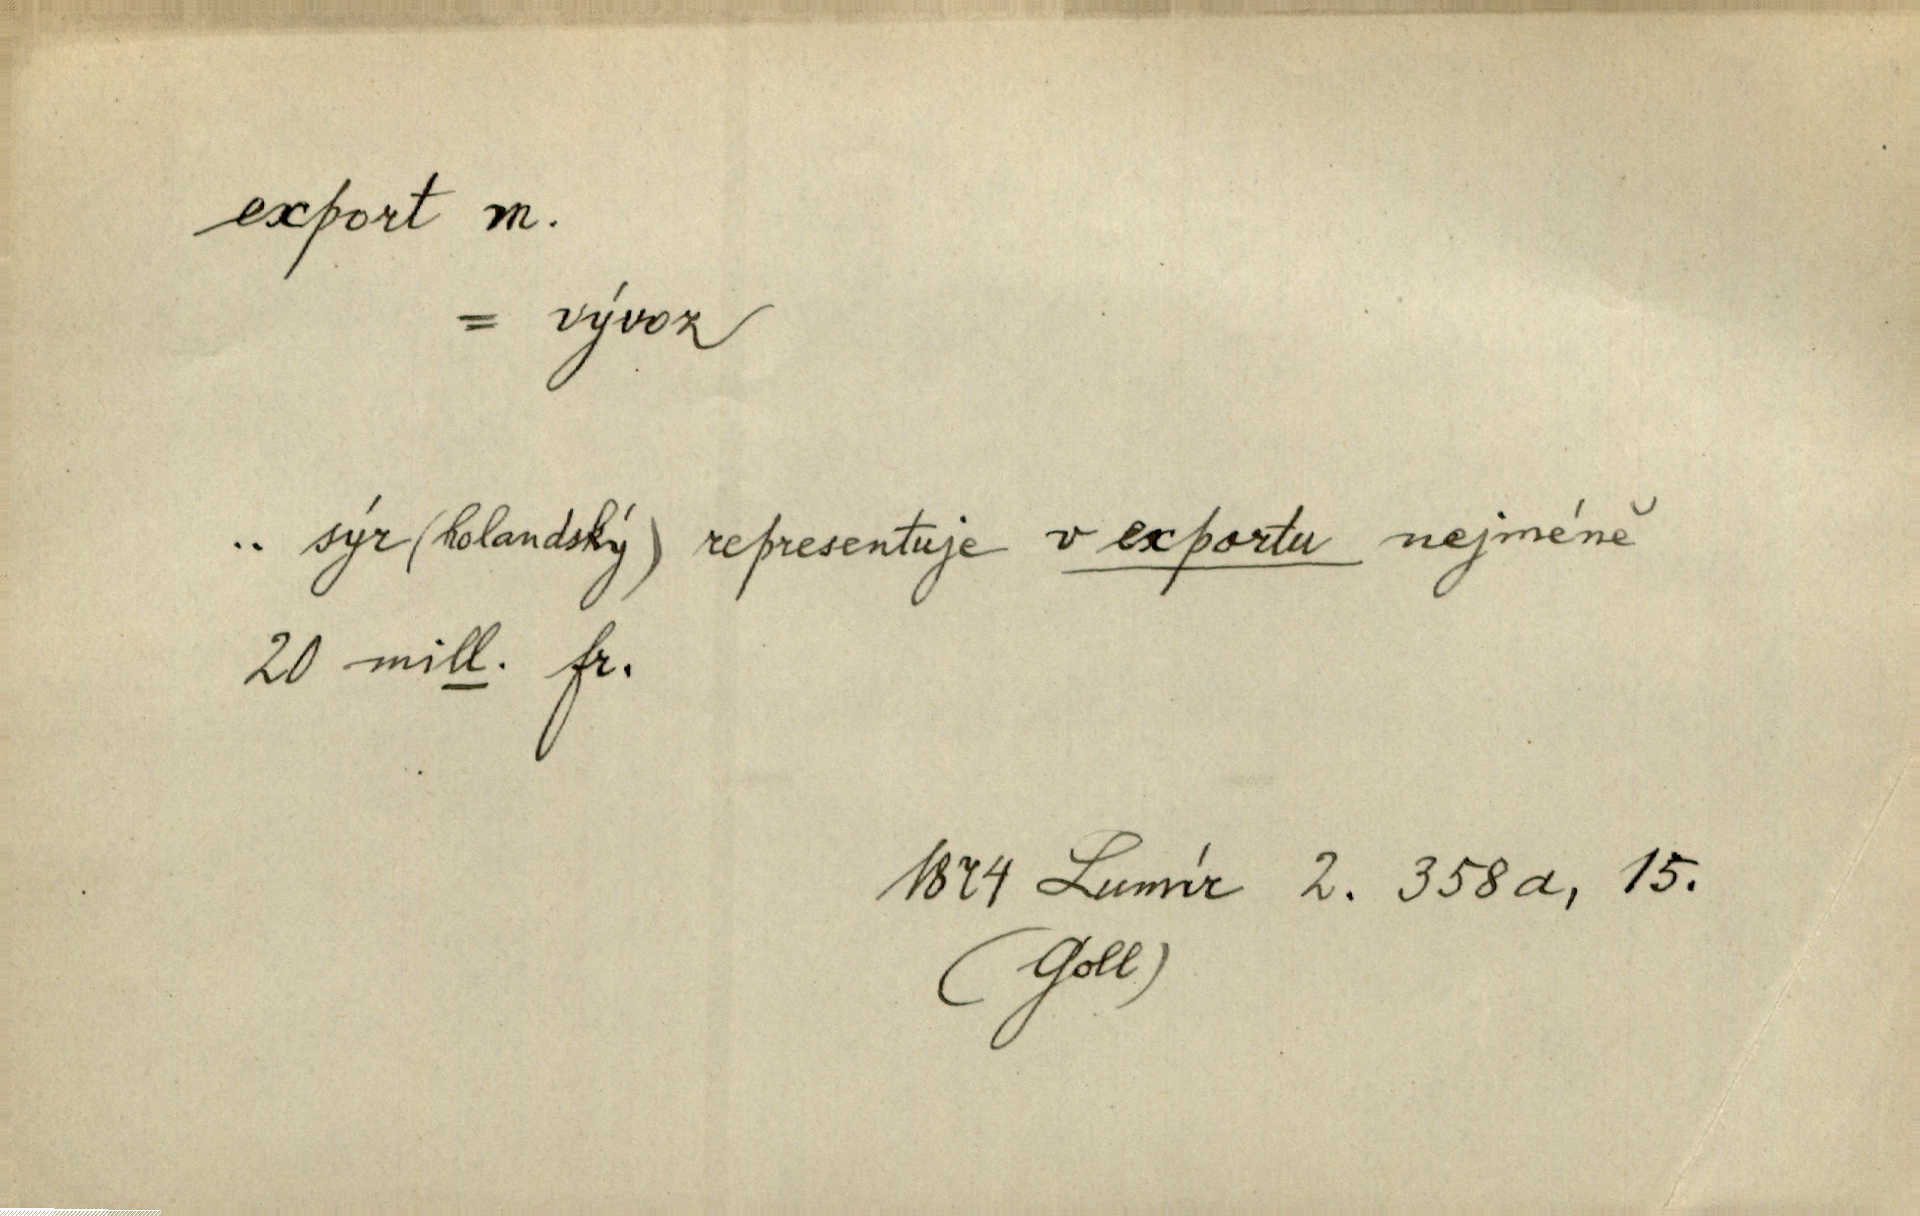 export m.
= vývoz
.. sýr (holandský) representuje v exportu nejméně
20 mill. fr.
1874 Lumír 2. 358a, 15.
(Goll)